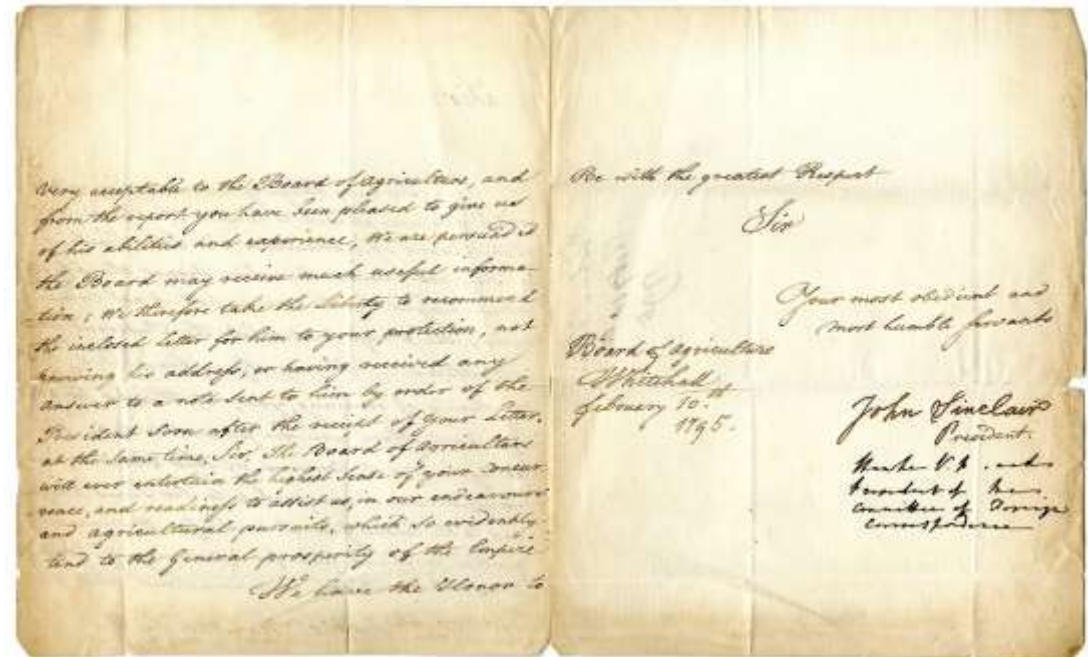 very acceptable to the Board of Agriculture, and
from the report you have been pleased to give us
of his abilities and experience, We are persuaded
the Board may receive much useful informa-
-tion; We therefore take the Liberty to recommend
the inclosed letter for him to your protection, not
knowing his address, or having received any
answer to a note sent to him by order of the
President soon after the receipt of your Letter.
at the same time, Sir, The Board of Agriculture
will ever entertain the highest Sense of your
and readiness to assist us, in our endeavours
and agricultural pursuits, which so evidently
tend to the General prosperity of the Empire
We have the Honor to
Be with the greatest Respect
Sir
Your most obedient and
most humble Servants
Board of Agriculture
Whitehall
February 10th
1795.
John Sinclair
President.
V P. and
President of the
Committee of Foreign
Correspondence